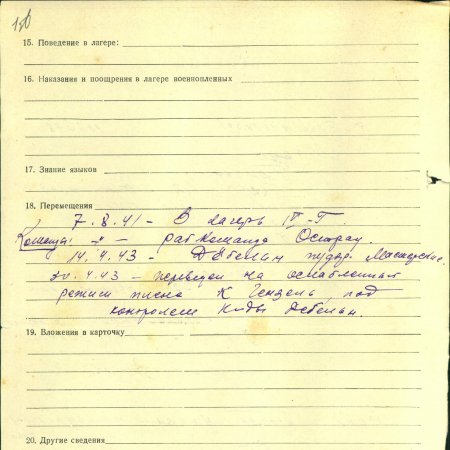 15. Поведение в лагере:
16. Наказания и поощрения в лагере военнопленных
17. Знание языков
18. Перемещения
7.8.41 - В лагерь IV-Г.
Команды: - раб. команда Острау.
14.4.43 - Дебельн
20.4.43 - переведен на ослабленный
режим плена к Гензель под
контролем к-ды Дебельн.
19. Вложения в карточку
20. Другие сведения